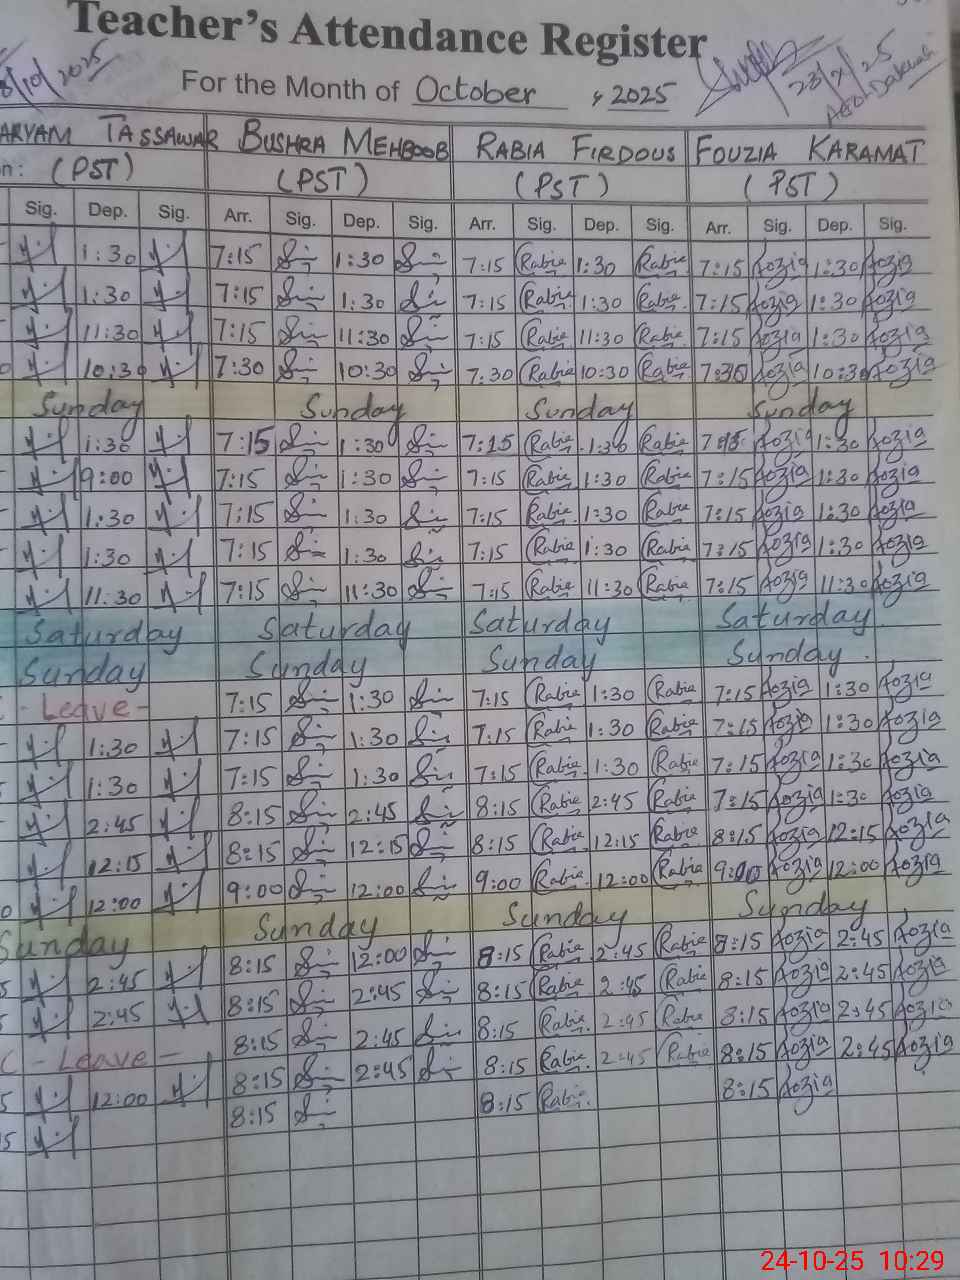 Teacher's Attendance Register
For the Month of October, 2025
8/10/2025
23/X/25
ARYAM TASSAWAR BUSHRA MEHBOOB RABIA FIRDOUS FOUZIA KARAMAT
n: (PST) (PST) (PST) (PST)
Sig. Dep. Sig. Arr. Sig. Dep. Sig. Arr. Sig. Dep. Sig. Arr. Sig. Dep. Sig.
1:30 7:15 1:30 7:15 Rabia 1:30 Rabia 7:15 fozia 1:30 fozia
1:30 7:15 1:30 7:15 Rabia 1:30 Rabia 7:15 fozia 1:30 fozia
11:30 7:15 11:30 7:15 Rabia 11:30 Rabia 7:15 fozia 1:30 fozia
10:30 7:30 10:30 7:30 Rabia 10:30 Rabia 7:30 fozia 10:30 fozia
Sunday Sunday Sunday Sunday
1:30 7:15 1:30 7:15 Rabia 1:30 Rabia 7:15 fozia 1:30 fozia
9:00 7:15 1:30 7:15 Rabia 1:30 Rabia 7:15 fozia 1:30 fozia
1:30 7:15 1:30 7:15 Rabia 1:30 Rabia 7:15 fozia 1:30 fozia
1:30 7:15 1:30 7:15 Rabia 1:30 Rabia 7:15 fozia 1:30 fozia
11:30 7:15 11:30 7:15 Rabia 11:30 Rabia 7:15 fozia 11:30 fozia
Saturday Saturday Saturday Saturday
Sunday Sunday Sunday Sunday
- Leave - 7:15 1:30 7:15 Rabia 1:30 Rabia 7:15 fozia 1:30 fozia
1:30 7:15 1:30 7:15 Rabia 1:30 Rabia 7:15 fozia 1:30 fozia
1:30 7:15 1:30 7:15 Rabia 1:30 Rabia 7:15 fozia 1:30 fozia
2:45 8:15 2:45 8:15 Rabia 2:45 Rabia 7:15 fozia 1:30 fozia
12:15 8:15 12:15 8:15 Rabia 12:15 Rabia 8:15 fozia 12:15 fozia
12:00 9:00 12:00 9:00 Rabia 12:00 Rabia 9:00 fozia 12:00 fozia
Sunday Sunday Sunday Sunday
2:45 8:15 12:00 8:15 Rabia 2:45 Rabia 8:15 fozia 2:45 fozia
2:45 8:15 2:45 8:15 Rabia 2:45 Rabia 8:15 fozia 2:45 fozia
- Leave - 8:15 2:45 8:15 Rabia 2:45 Rabia 8:15 fozia 2:45 fozia
12:00 8:15 2:45 8:15 Rabia 2:45 Rabia 8:15 fozia 2:45 fozia
8:15 8:15 Rabia 8:15 fozia
24-10-25 10:29